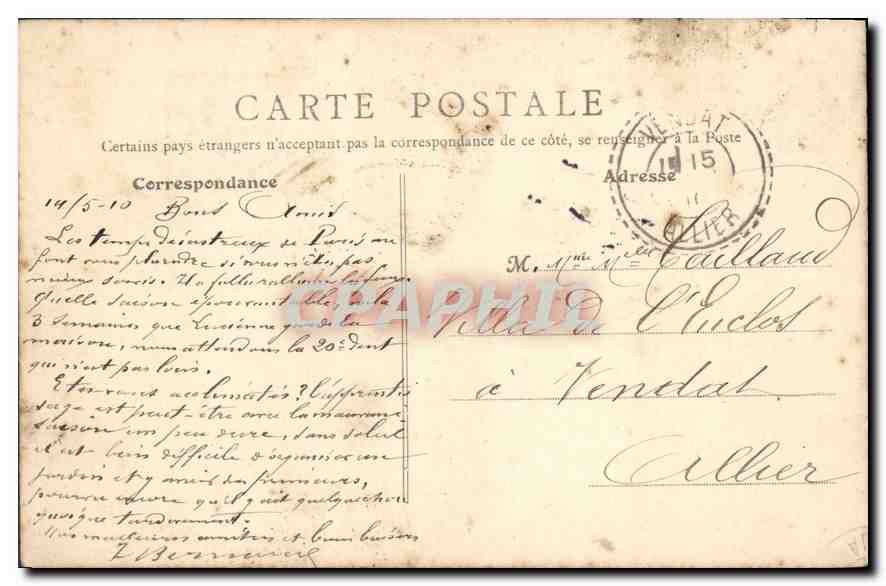 CARTE POSTALE
Certains pays étrangers n'acceptant pas la correspondance de ce côté, se renseigner à la Poste
Correspondance
14/5-10 Bons Amis
Les temps désastreux de Paris me
font vous plaindre si vous n'êtes pas
mieux servis. Il a fallu rallumer
Quelle saison épouvantable, voilà
3 semaines que Lucienne garde la
maison, nous attendons la 20e dent
qui n'est pas loin.
Etes-vous acclimatés? l'apprentis
sage est peut-être avec la mauvaise
saison un peu dure, sans soleil
il est bien difficile d'organiser un
jardin et y avoir des primeurs,
pourvu encore qu'il y ait quelque chose
quoique tardivement.
Nos meilleures amitiés et bons baisers
Adresse
M. Mme Melle Taillaud
Villa De l'Enclos
à Vendat
Allier
VENDAT
15
ALLIER
CPAPHIL